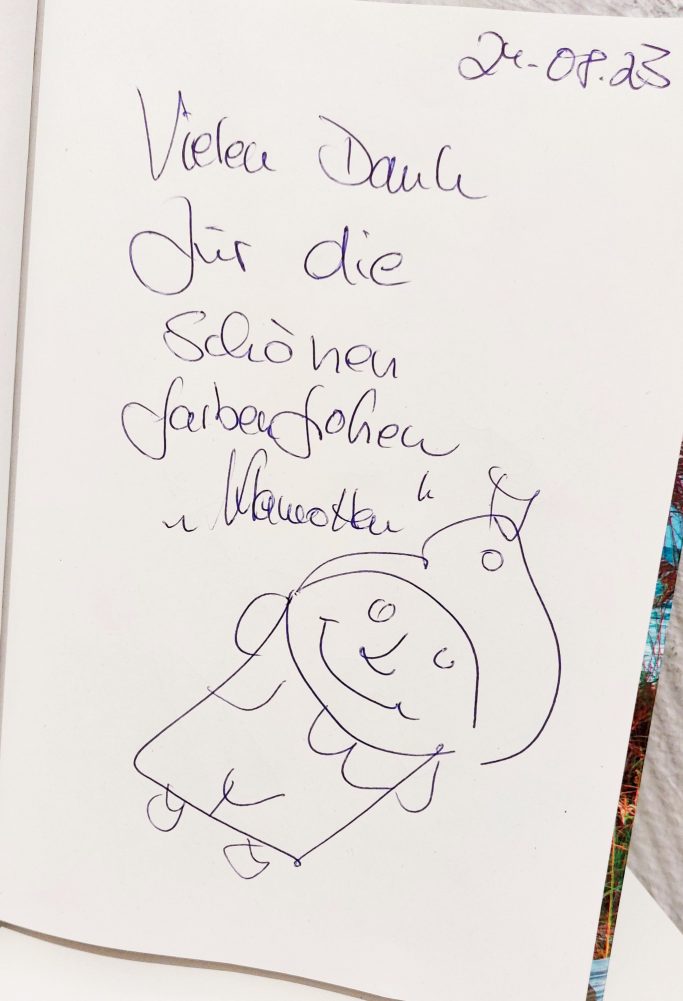 24.08.23
Vielen Dank
für die
schönen
farbenfrohen
„Klamotten“